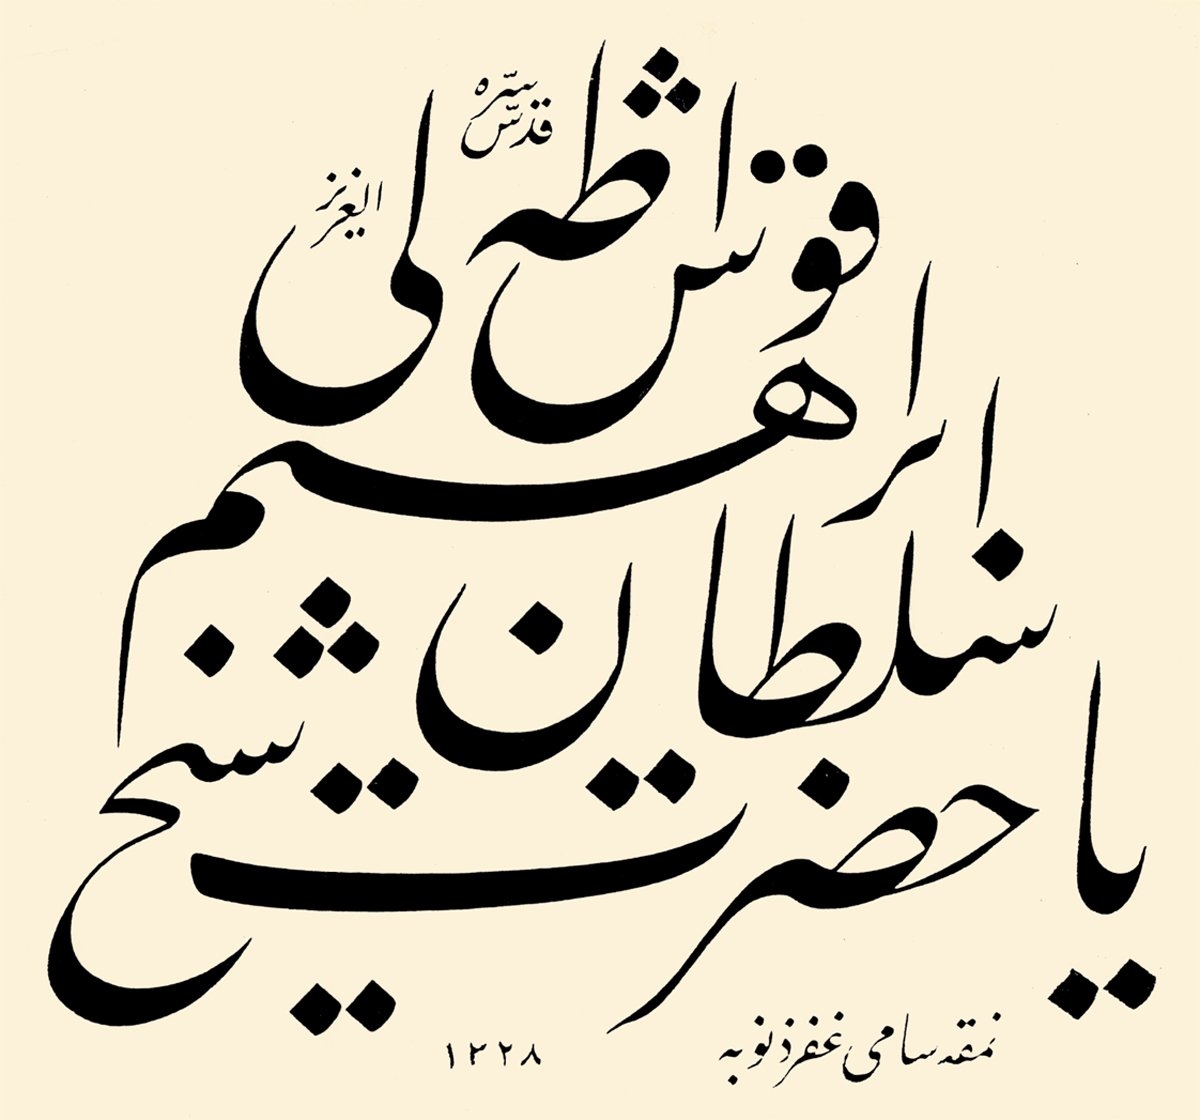 یا حضرت شیخ
سلطان
ابراهیم
قوش اطه لی
قدّس سرّه
العزیز
نمقه سامی غفر ذنوبه
١٣٢٨